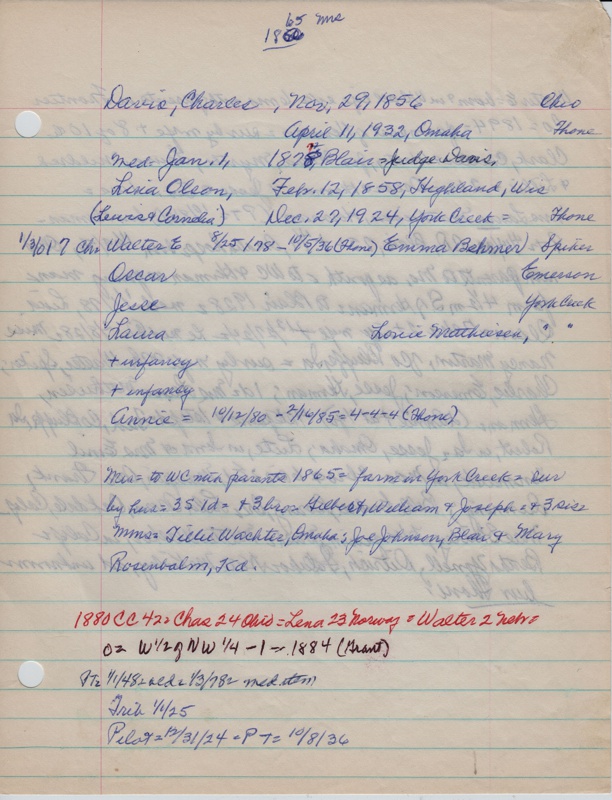 65 mrs
1860
Davis, Charles , Nov, 29, 1856 Ohio
April 11, 1932, Omaha Fhone
Med. Jan. 1, 187 , Blair = Judge Davis,
Lina Olson, Feb. 12, 1858, Highland, Wis
(Lewis & Cornelia) Dec. 27, 1924, York Creek = Fhone
Ch= Walter E 8/25/78 - 10/5/36 (Fhone) Emma Behmer Spiker
Oscar Emerson
Jesse York Creek
Laura Louie Mathiesen, " "
+ infancy
+ infancy
Annie = 10/12/80 - 2/16/85 = 4-4-4 (Fhone)
Mrs= to WC with parents 1865 = farm in York Creek = sur
by hus = 3S 1d = + 3 bro = Gilbert, William & Joseph = + 3 sis =
Mmes = Tillie Wachter, Omaha; Joe Johnson, Blair & Mary
Rosenbalm, Kd.
1880 CC 42 = Chas 24 Ohio = Lena 23 Norway = Walter 2 Nebr =
O= W 1/2 of NW 1/4 - 1 - 1884 (Grant)
Trib 1/1/25
Pilot = 12/31/24 = PT = 10/8/36